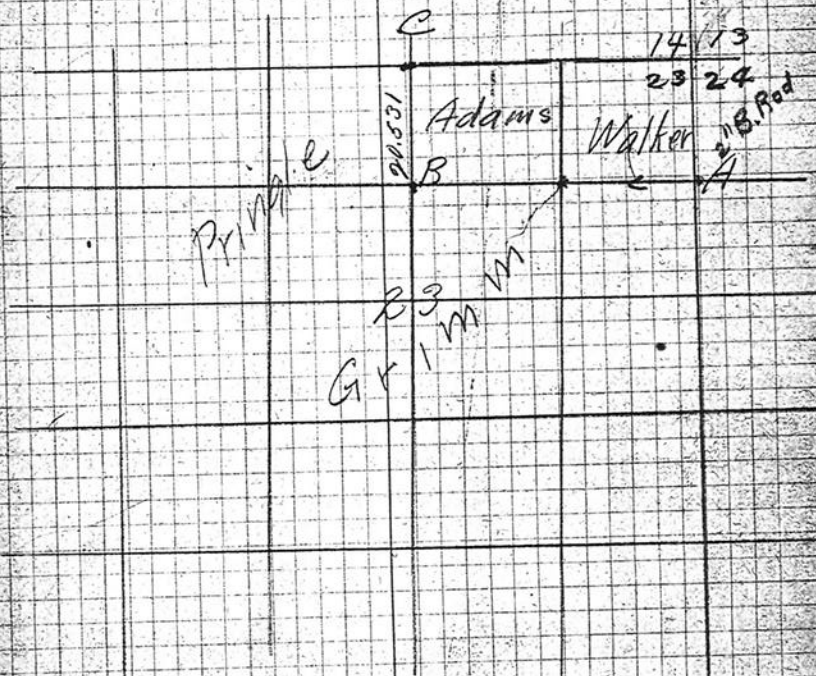 C
14 13
23 24
2" B. Rod
20.531
Adams
Walker
A
B
Pringle
23
Grimm